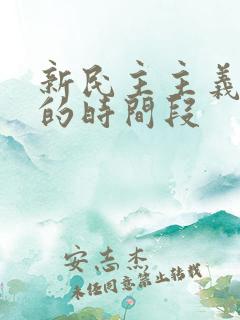 新民主主義
的時間段
安志杰
未經同意禁止轉載